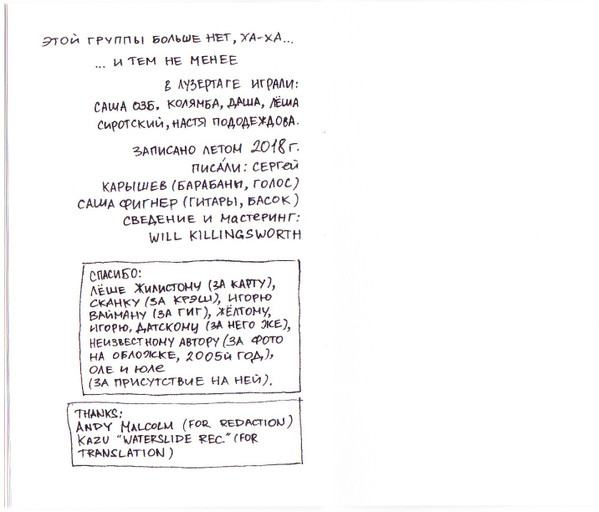 ЭТОЙ ГРУППЫ БОЛЬШЕ НЕТ, ХА-ХА...
... И ТЕМ НЕ МЕНЕЕ
В ЛУЗЕРТАГЕ ИГРАЛИ:
САША ОЗБ. КОЛЯМБА, ДАША, ЛЁША
СИРОТСКИЙ, НАСТЯ ПОДОДЕЖДОВА.
ЗАПИСАНО ЛЕТОМ 2018 Г.
ПИСА́ЛИ: СЕРГЕЙ
КАРЫШЕВ (БАРАБАНЫ, ГОЛОС)
САША ФИГНЕР (ГИТАРЫ, БАСОК)
СВЕДЕНИЕ И МАСТЕРИНГ:
WILL KILLINGSWORTH
СПАСИБО:
ЛЁШЕ ЖИЛИСТОМУ (ЗА КАРТУ),
СКАНКУ (ЗА КРЭШ), ИГОРЮ
ВАЙМАНУ (ЗА ГИГ), ЖЁЛТОМУ,
ИГОРЮ, ДАТСКОМУ (ЗА НЕГО ЖЕ),
НЕИЗВЕСТНОМУ АВТОРУ (ЗА ФОТО
НА ОБЛОЖКЕ, 2005Й ГОД,),
ОЛЕ И ЮЛЕ
(ЗА ПРИСУТСТВИЕ НА НЕЙ).
THANKS:
ANDY MALCOLM (FOR REDACTION)
KAZU "WATERSLIDE REC." (FOR
TRANSLATION)